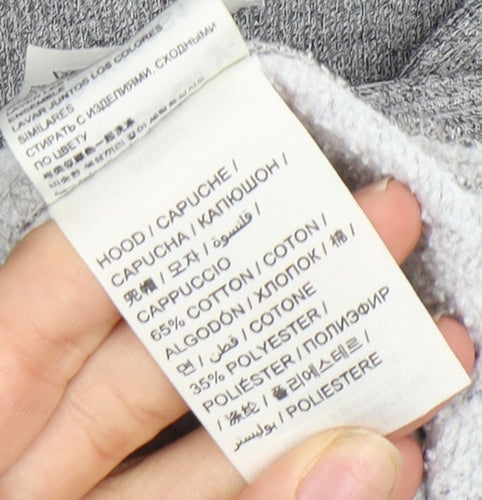 LAVAR JUNTOS LOS COLORES
SIMILARES
СТИРАТЬ С ИЗДЕЛИЯМИ, СХОДНЫМИ
ПО ЦВЕТУ
HOOD / CAPUCHE /
CAPUCHA / КАПЮШОН /
兜帽 / 모자 / قلنسوة /
CAPPUCCIO
65% COTTON / COTON /
ALGODÓN / ХЛОПОК / 棉 /
면 / قطن / COTONE
35% POLYESTER /
POLIÉSTER / ПОЛИЭФИР
/ 涤纶 / 폴리에스테르 /
بوليستر / POLIESTERE